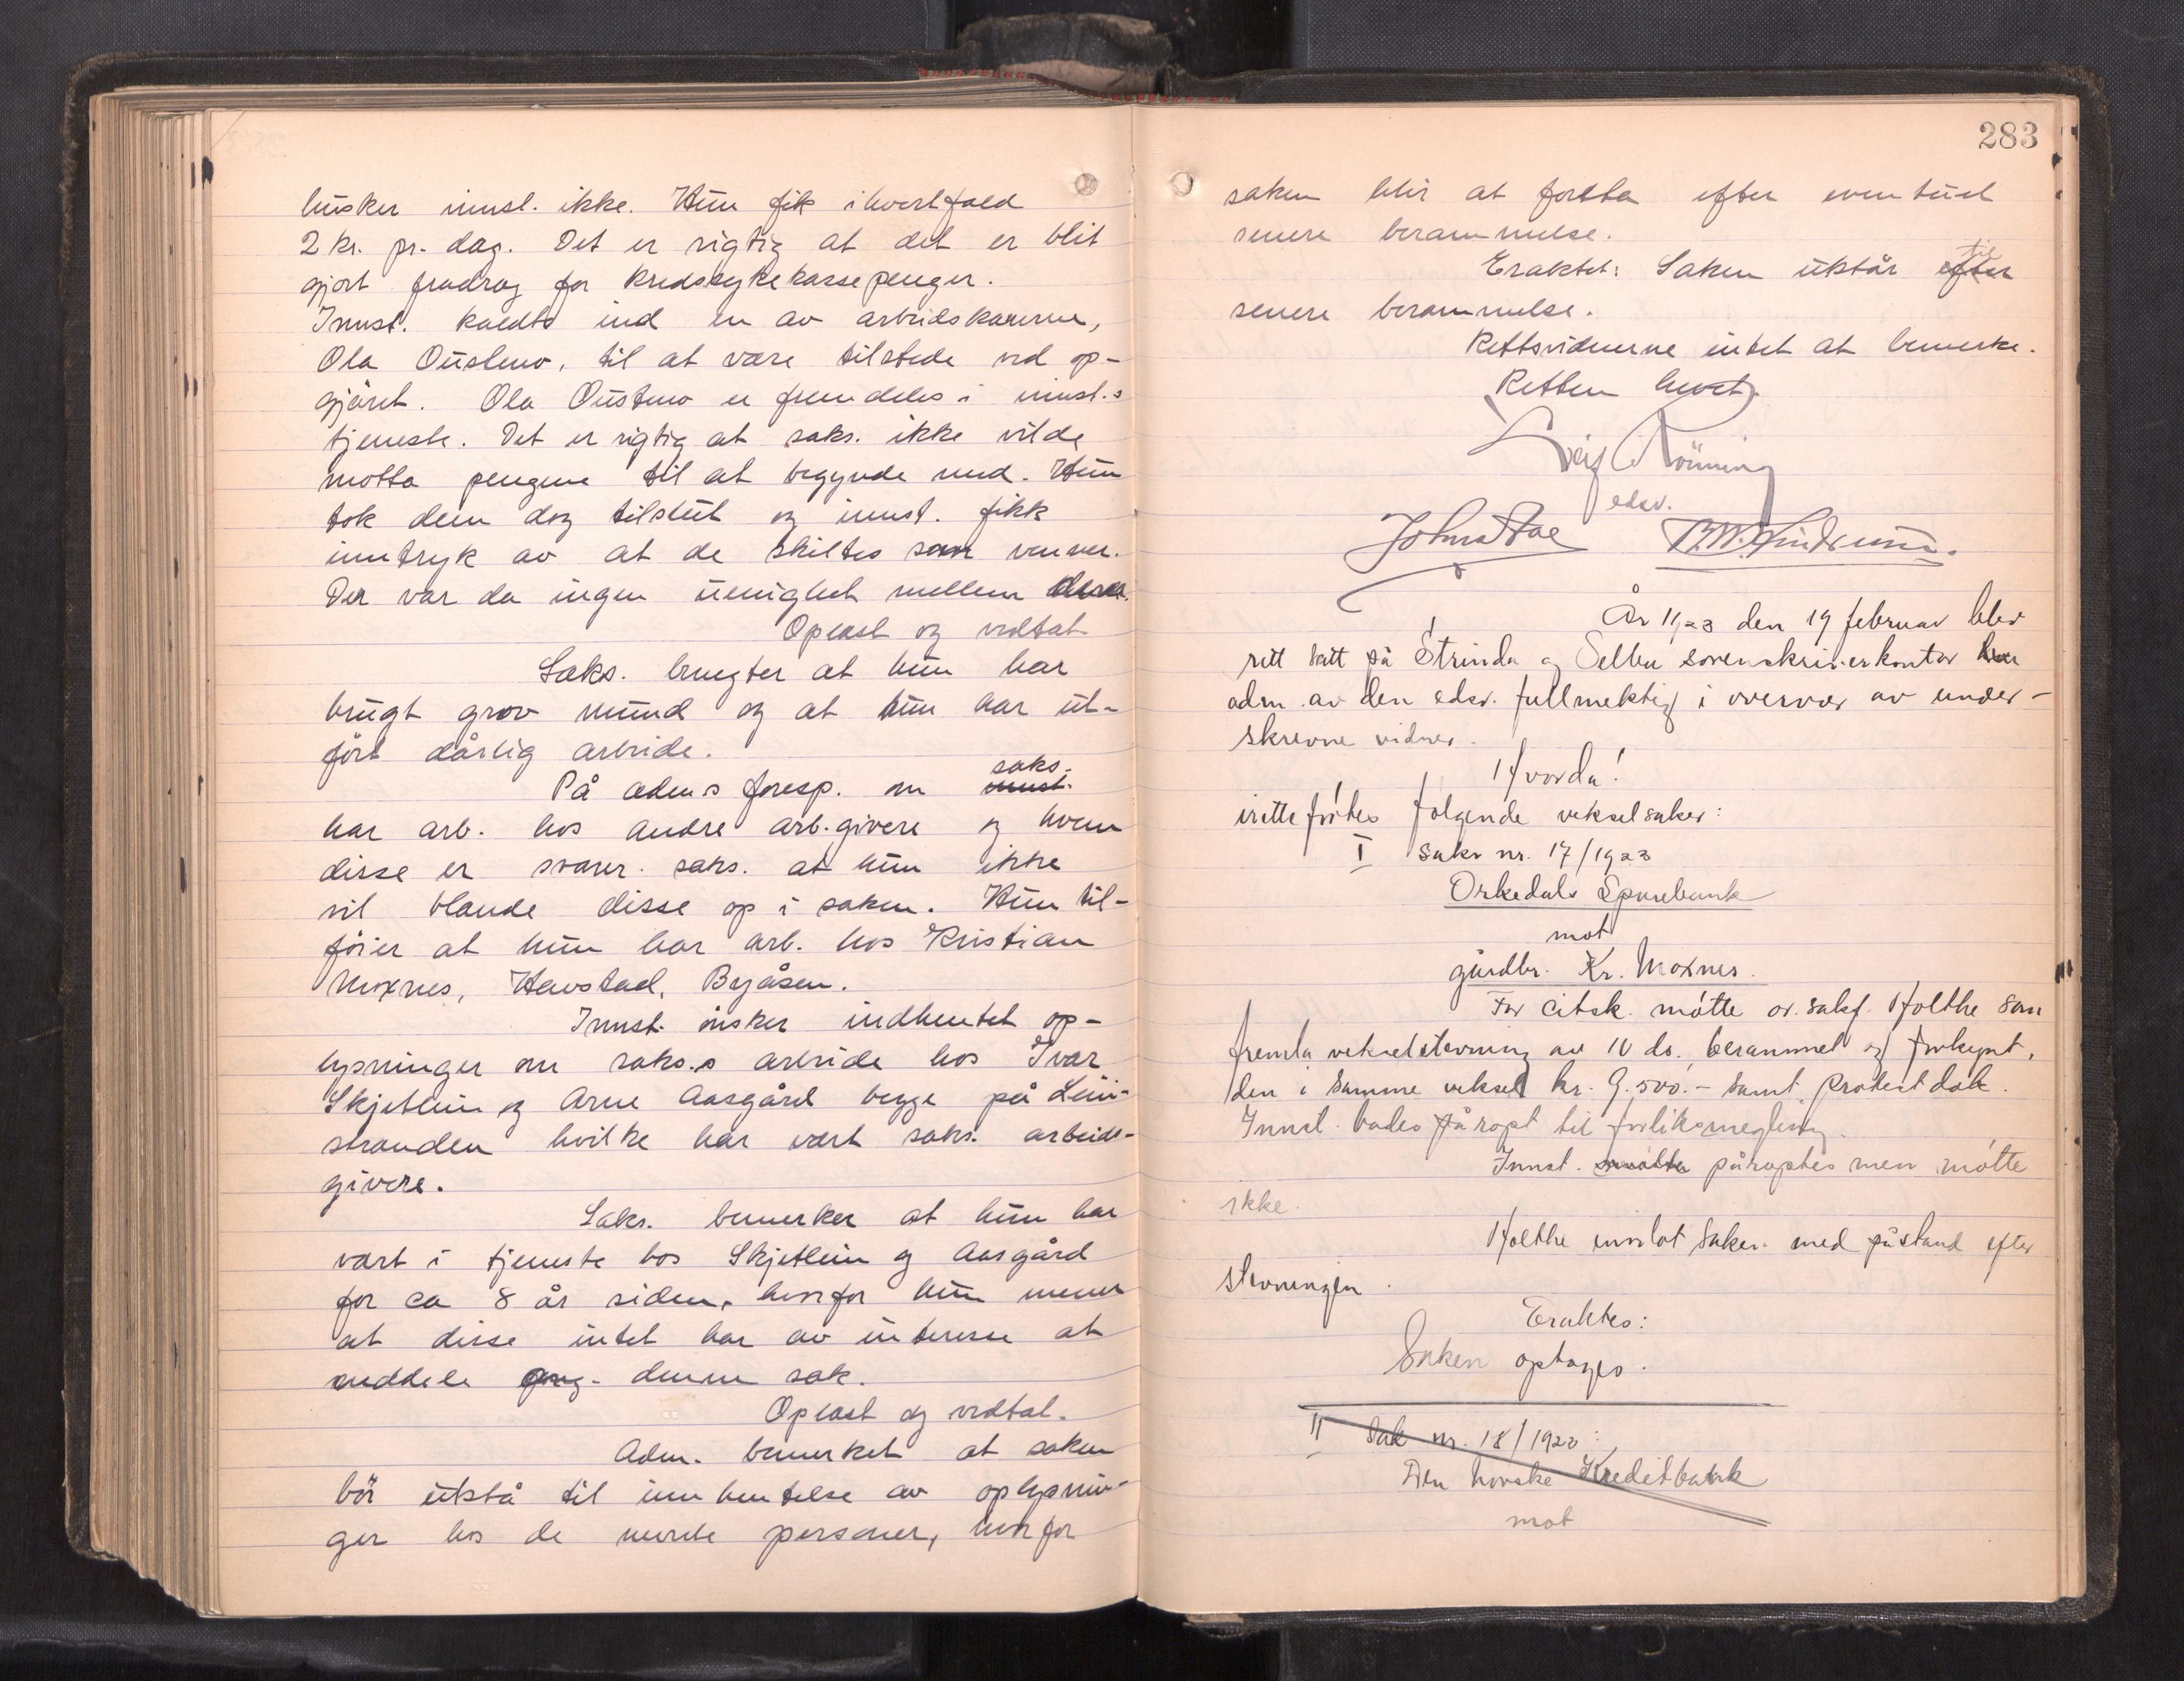 husker innst. ikke. Hun fik ihvertfald
2 kr. pr. dag. Det er rigtig at det er blit
gjort fradrag for kredssykekassepenger.
Innst. kaldte ind en av arbeidskarerne,
Ola Oustmo, til at være tilstede ved op-
gjöret. Ola Oustmo er fremdeles i innst.s
tjeneste. Det er rigtig at saks. ikke vilde
motta pengene til at begynde med. Hun
tok dem dog tilslut og innst. fikk
inntryk av at de skiltes som venner.
Der var da ingen uenighet mellem dem.
Oplæst og vedtat
Saks. benegter at hun har
brugt grov mund og at hun har ut-
fört dårlig arbeide.
På adm.s foresp. om saks. innst.
har arb. hos andre arb.givere og hvem
disse er svarer saks. at hun ikke
vil blande disse op i saken. Hun til-
föier at hun har arb. hos Kristian
Moxnes, Havstad, Byåsen.
Innst. önsker indhentet op-
lysninger om saks.s arbeide hos Ivar
Skjetlein og Arne Aasgård begge på Lein-
stranden hvilke har vært saks. arbeids-
givere.
Saks. bemerker at hun har
vært i tjeneste hos Skjetlein og Aasgård
for ca 8 år siden, hvorfor hun mener
at disse intet har av interesse at
meddele ang. denne sak.
Oplæst og vedtat.
Adm. bemerket at saken
bör utstå til innhentelse av oplysnin-
ger hos de nevnte personer, hvorfor
283
saken blir at foretta efter eventuel
senere berammelse.
Eraktet: Saken utstår efter til
senere berammelse.
Rettsvidnerne intet at bemerke.
Retten hevet.
Leif Rönning
edsv.
Johns Moe
År 1923 den 19 februar blev
rett satt på Strinda og Selbu sorenskriverkontor
adm. av den edsv. fullmektig i overvær av under-
skrevne vidner.
Hvorda!
irettefrtes følgende vekselsaker:
I Sak nr. 17/1923
Orkedals Sparebank
mot
gårdbr. Kr. Moxnes.
For citsk. møtte or. sakf. Holthe som
fremla vekselstevning av 10 ds. berammet og forkynt,
den i samme veksel kr. 9.500.- samt protestdok.
Innst. bades påropt til forliksmegling.
Innst. møtte påroptes men møtte
ikke.
Holthe innlot saken med påstand efter
stevningen.
Eraktes:
Saken optages.
II Sak nr. 18/1923:
Den norske Kreditbank
mot